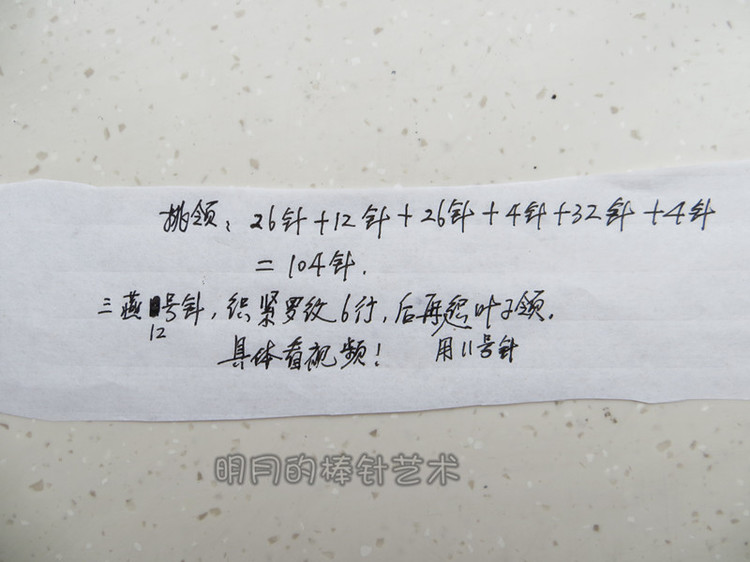 挑领：26针+12针+26针+4针+32针+4针
=104针.
三燕12号针，织紧罗纹6行，后再起叶子领.
具体看视频！ 用11号针
明月的棒针艺术